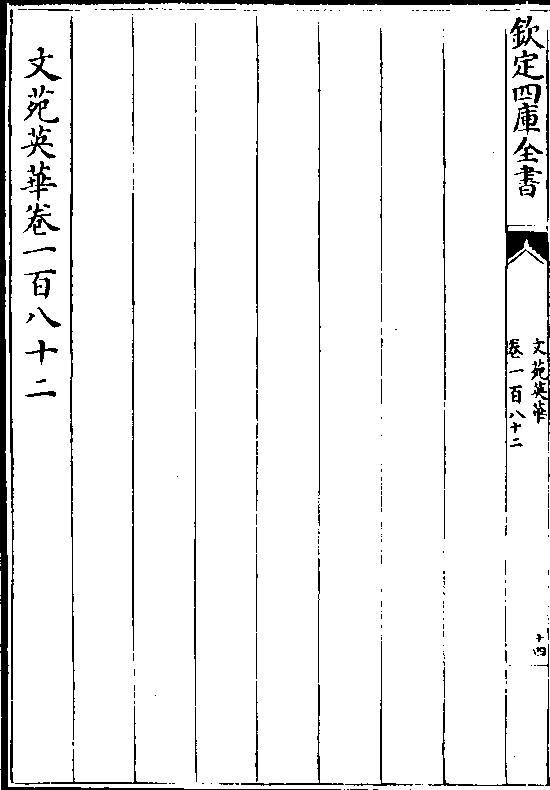 欽定四庫全書
文苑英華
卷一百八十二
十四
文苑英華卷一百八十二